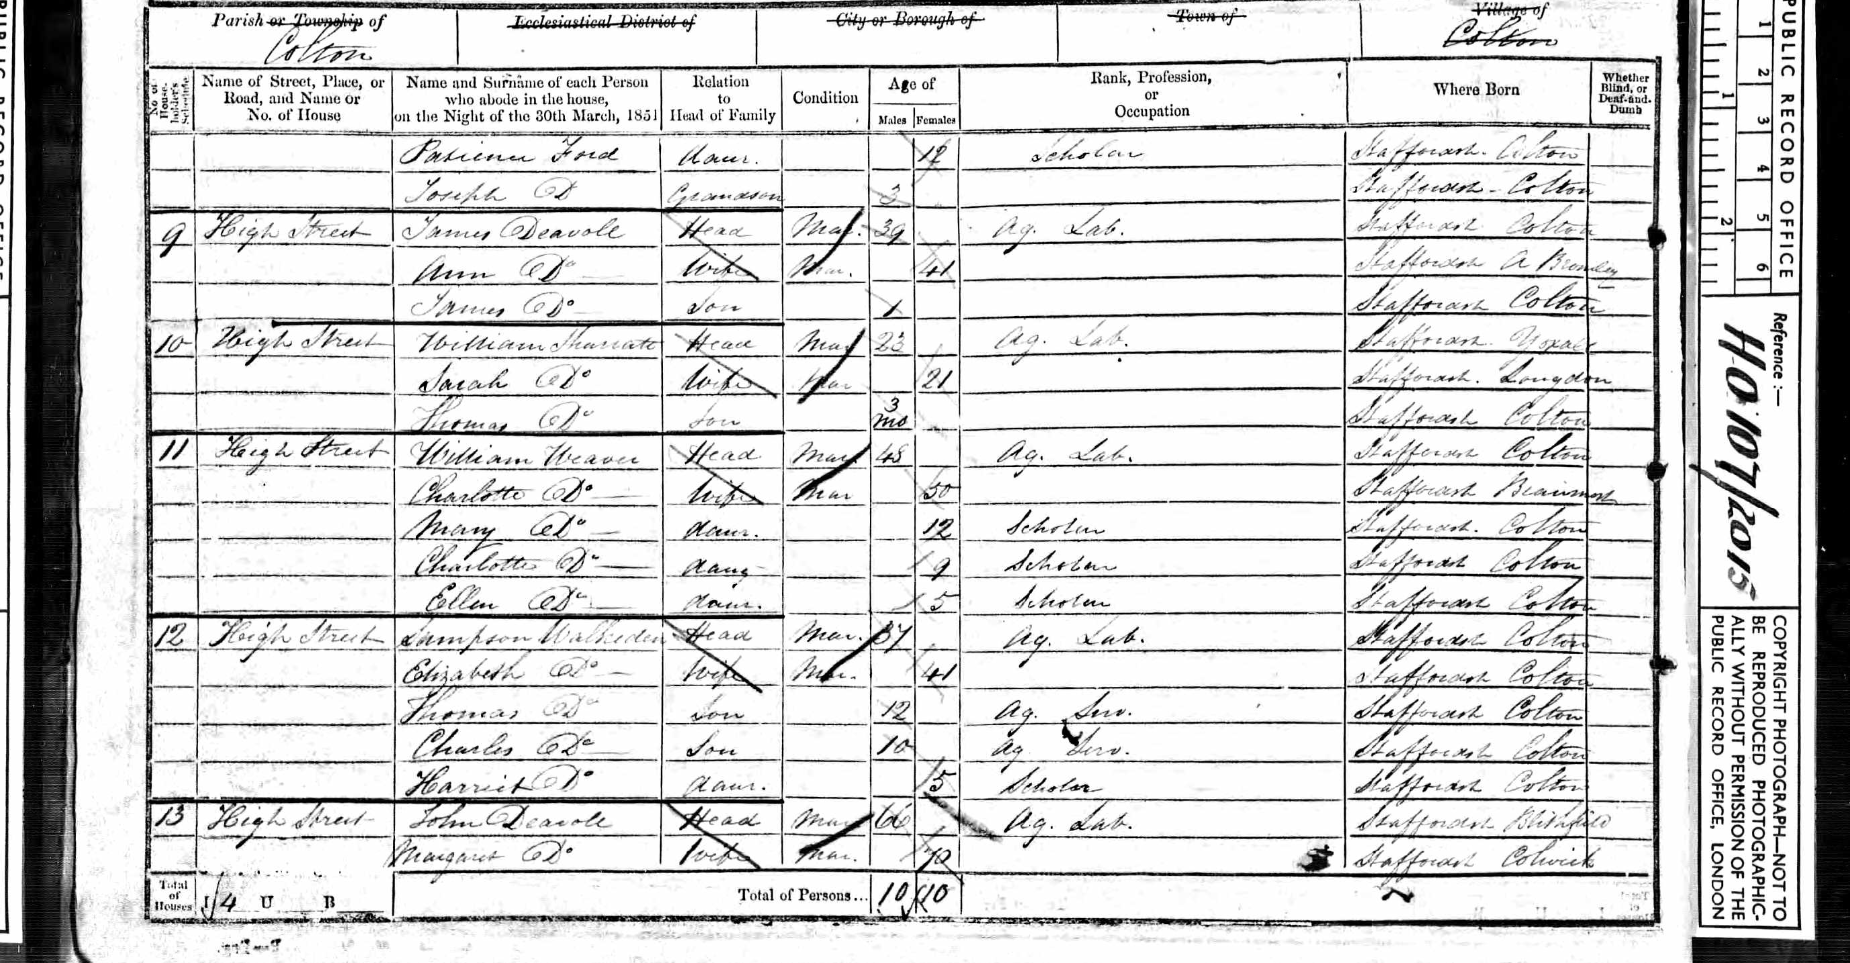 Parish or Township of
Colton
Ecclesiastical District of
City or Borough of
Town of
Village of
Colton
No. of House-holder's Schedule
Name of Street, Place, or Road, and Name or No. of House
Name and Surname of each Person who abode in the house, on the Night of the 30th March, 1851
Relation to Head of Family
Condition
Age of
Males Females
Rank, Profession, or Occupation
Where Born
Whether Blind, or Deaf-and-Dumb
Patience Ford daur. 12 Scholar Staffordsh. Colton
Joseph Do Grandson 3 Staffordsh - Colton
9 High Street James Deavole Head Mar. 39 Ag. Lab. Staffordsh Colton
Ann Do Wife Mar. 41 Staffordsh A Bromley
James Do Son 1 Staffordsh Colton
10 High Street William Head Mar 23 Ag. Lab. Staffordsh. Yoxall
Sarah Do Wife Mar 21 Staffordsh. Longdon
Thomas Do Son 3 mo Staffordsh Colton
11 High Street William Weaver Head Mar 48 Ag. Lab. Staffordsh Colton
Charlotte Do Wife Mar 50 Staffordsh
Mary Do daur. 12 Scholar Staffordsh. Colton
Charlotte Do daug 9 Scholar Staffordsh Colton
Ellen Do daur. 5 Scholar Staffordsh Colton
12 High Street Sampson Walkeden Head Mar. 37 Ag. Lab. Staffordsh Colton
Elizabeth Do Wife Mar. 41 Staffordsh Colton
Thomas Do Son 12 Ag. Serv. Staffordsh Colton
Charles Do Son 10 Ag Serv. Staffordsh Colton
Harriet Do daur. 5 Scholar Staffordsh Colton
13 High Street John Deavole Head Mar 66 Ag. Lab. Staffordsh Blithfield
Margaret Do Wife Mar. 70 Staffordsh Colwich
Total of Houses I 4 U B Total of Persons... 10 10
PUBLIC RECORD OFFICE
1 2 3 4 5 6
1 2
Reference :—
HO 107/2015
COPYRIGHT PHOTOGRAPH—NOT TO BE REPRODUCED PHOTOGRAPHIC-ALLY WITHOUT PERMISSION OF THE PUBLIC RECORD OFFICE, LONDON